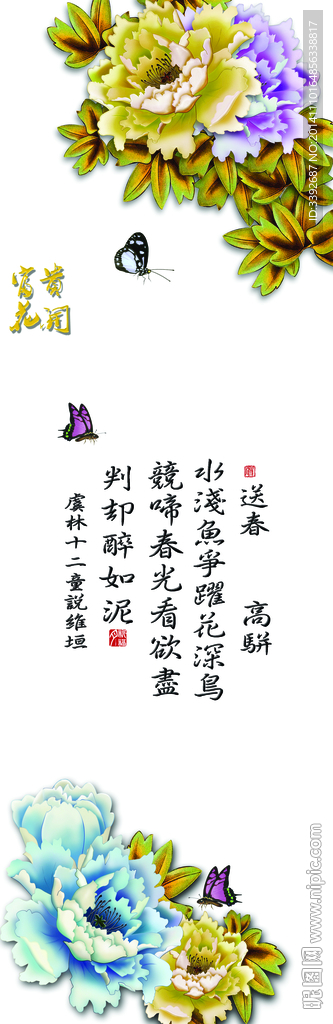 送春 高駢
水淺魚爭躍花深鳥
競啼春光看欲盡
判却醉如泥
虞林十二童說維垣
花開
富貴
ID:3392687 NO:20141110164856338817
昵图网 www.nipic.com